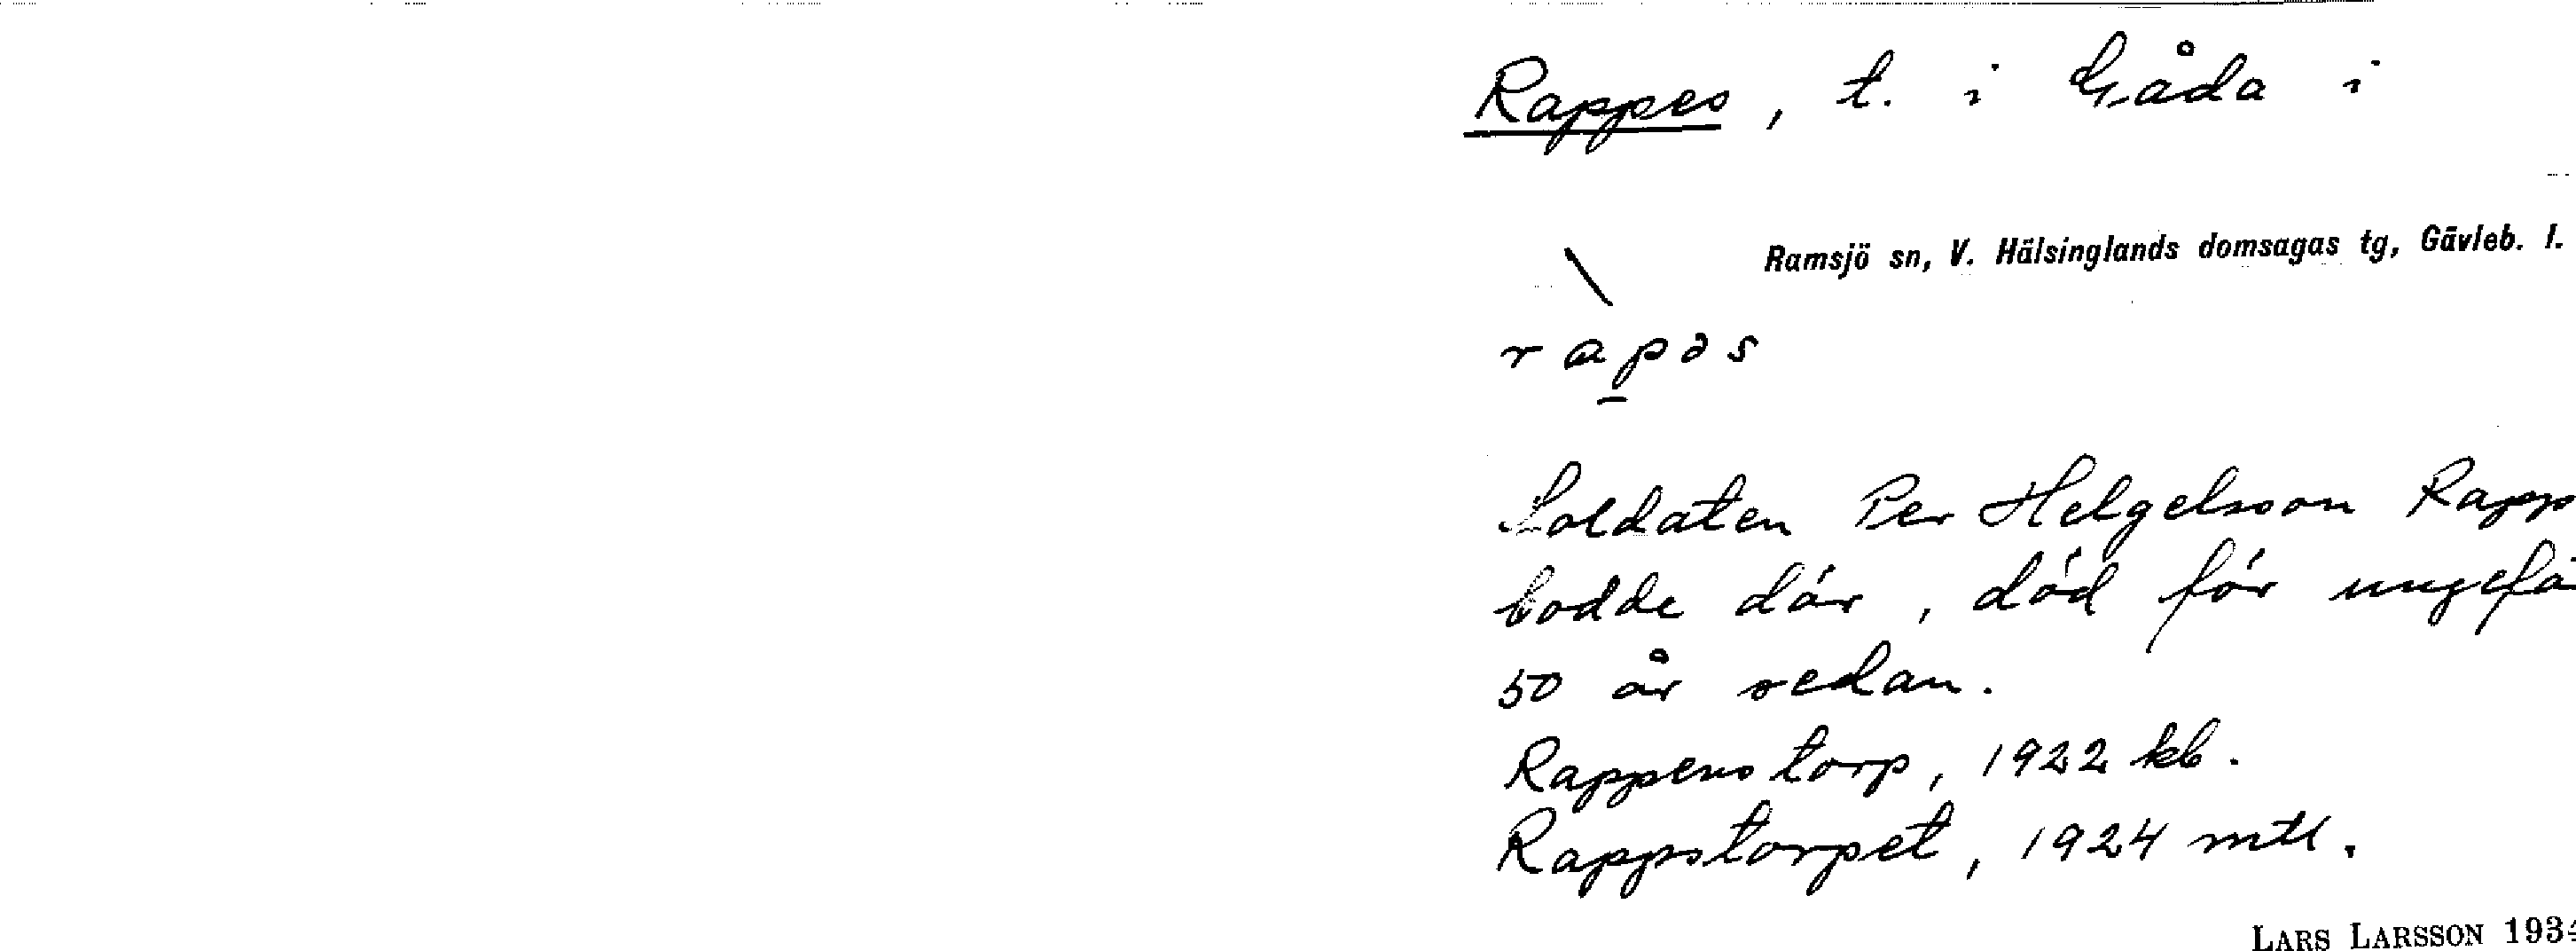 Rappes, t. i Gåda i
Ramsjö sn, V. Hälsinglands domsagas tg, Gävleb. l.
rapəs
Soldaten Per Helgelsson Rapp
bodde där, död för ungefä
50 år sedan.
Rappens torp, 1922 kb.
Rappstorpet, 1924 mtl.
LARS LARSSON 193